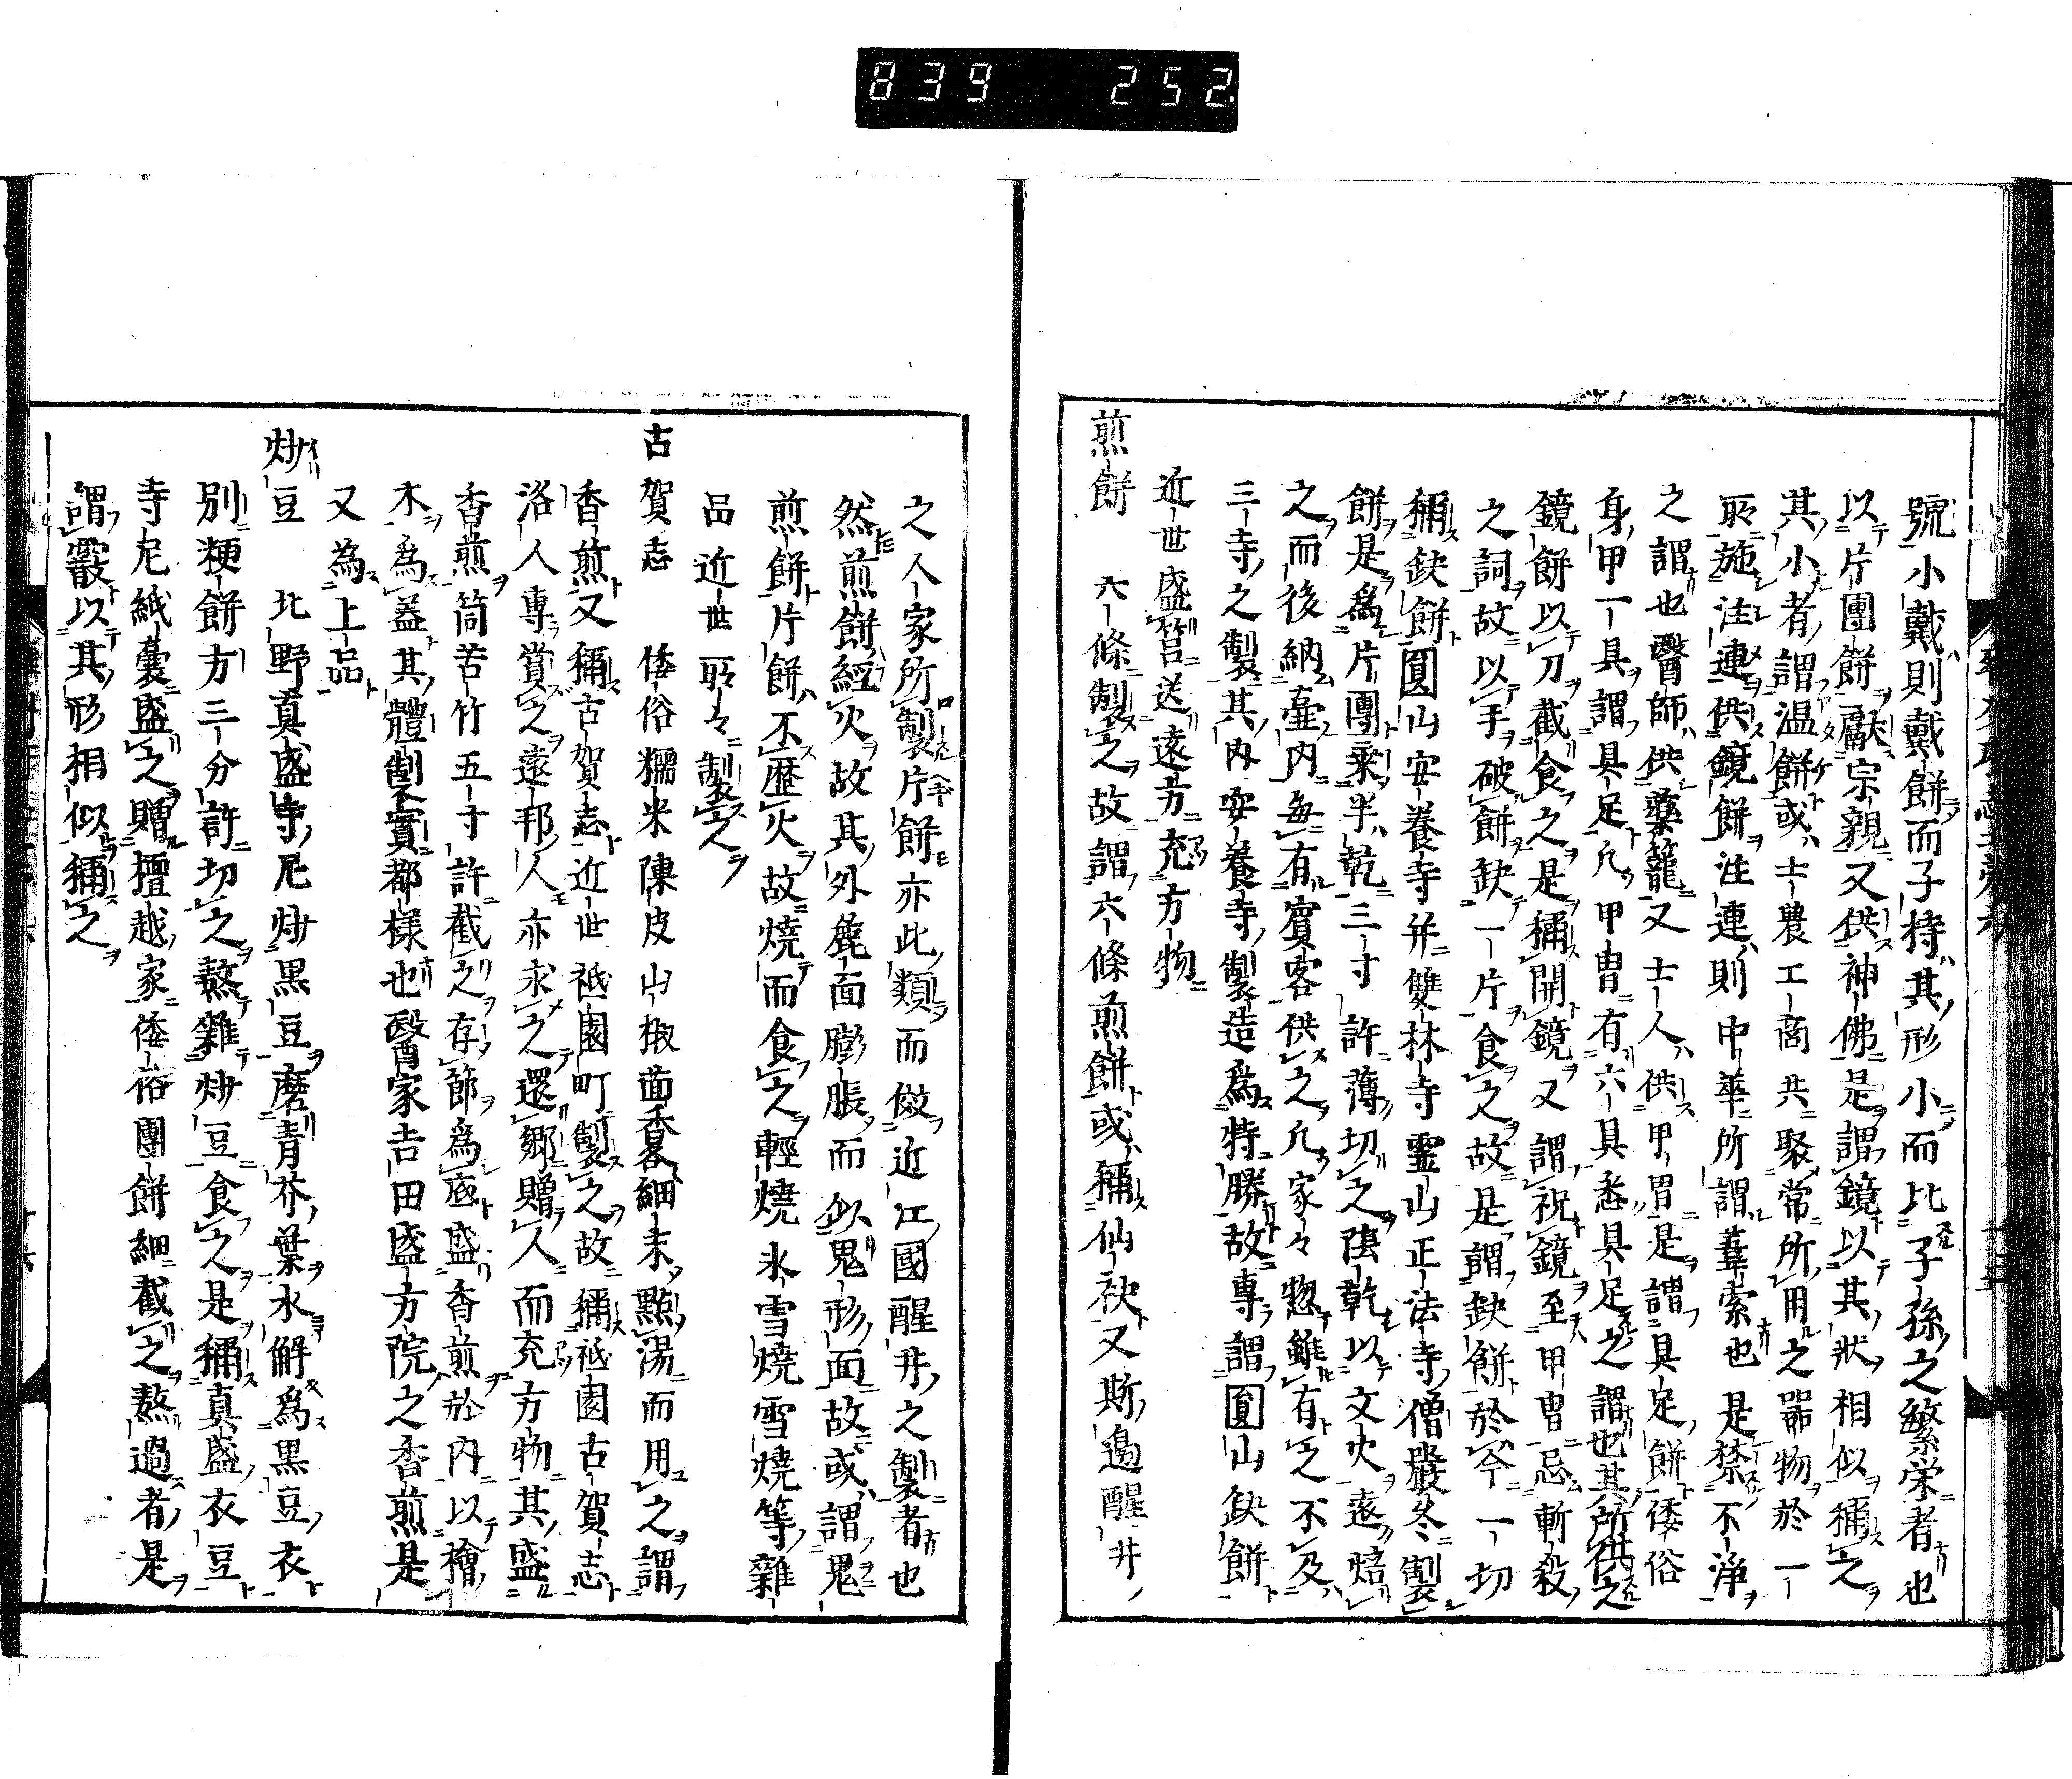 839 252
號小戴則戴餅而子持其形小而比子孫之繁栄者也
以片團餅獻宗親又供神佛是謂鏡以其狀相似稱之
其小者謂温餅或士農工商共聚常所用之噐物於一
所施注連供鏡餅注連則中華所謂葦索也是禁不浄
之謂也醫師供藥籠又士人供甲冑是謂具足餅倭俗
身甲一具謂具足凡甲冑有六具悉具足之謂也其所供之
鏡餅以刀截食之是稱開鏡又謂祝鏡至甲冑忌斬殺
之詞故以手破餅缺一片食之故是謂缺餅於今一切
稱缺餅圓山安養寺并雙林寺霊山正法寺僧嚴冬製
餅是爲片團乘半乾三寸許薄切之陰乾以文火遠焙
之而後納臺内毎有賓客供之凡家々惣雖有之不及
三寺之製其内安養寺製造爲特勝故專謂圓山缺餅
近世盛筥送遠方充方物
煎餅 六條製之故謂六條煎餅或稱仙袂又斯邉醒井
之人家所製片餅亦此類而傚近江國醒井之製者也
然煎餅經火故其外麁面膨脹而似鬼形面故或謂鬼
煎餅片餅不歴火故燒而食之輕燒氷雪燒雪燒等雜
品近世所々製之
古賀志 倭俗糯米陳皮山椒茴香畧細末點湯而用之謂
香煎又稱古賀志近世祗園町製之故稱祗園古賀志
洛人專賞之遠邦人亦求之還郷贈人而充方物其盛
香煎筒苦竹五寸許截之存節爲底盛香煎於内以檜
木爲蓋其體制寔都樣也醫家吉田盛方院之香煎是
又為上品
炒豆 北野真盛寺尼炒黒豆磨青芥葉水解爲黒豆衣
別粳餅方三分許切之熬雜炒豆食之是稱真盛衣豆
寺尼紙嚢盛之贈擅越家倭俗團餅細截之熬過者是
謂霰以其形相似稱之